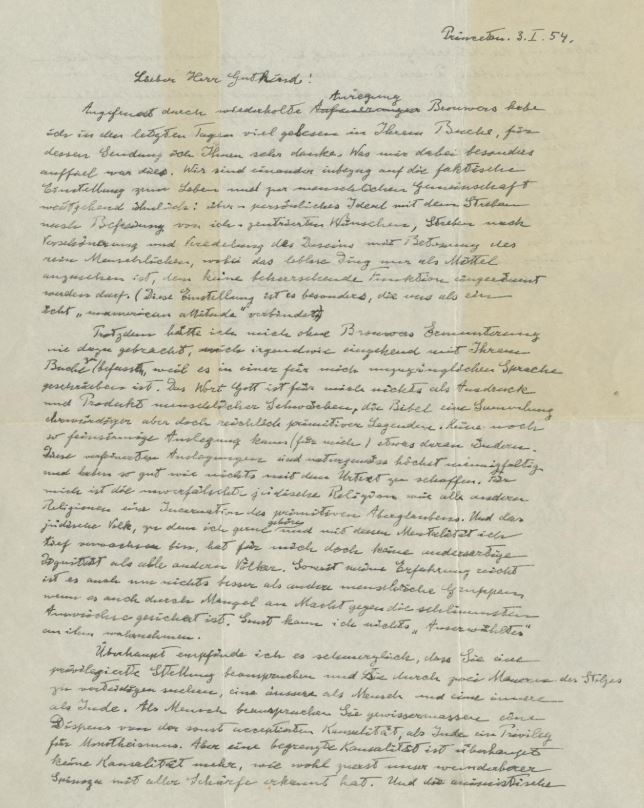 Princeton. 3. I. 54.
Lieber Herr Gutkind!
Anregung
Angefeuert durch wiederholte Brouwers habe
ich in den letzten Tagen viel gelesen in Ihrem Buche, für
dessen Sendung ich Ihnen sehr danke. Was mir dabei besonders
auffiel war dies. Wir sind einander inbezug auf die faktische
Einstellung zum Leben und zur menschlichen Gemeinschaft
weitgehend ähnlich: über-persönliches Ideal mit dem Streben
nach Befreiung von ich-zentrierten Wünschen, Streben nach
Verschönerung und Veredelung des Daseins mit Betonung des
rein Menschlichen, wobei das leblose Ding nur als Mittel
anzusehen ist, dem keine beherrschende Funktion eingeräumt
werden darf. (Diese Einstellung ist es besonders, die uns als ein
echt „unamerican attitude" verbindet.)
Trotzdem hätte ich mich ohne Brouwers Ermunterung
nie dazu gebracht, mich irgendwie eingehend mit Ihrem
Buche zu befassen, weil es in einer für mich unzugänglichen Sprache
geschrieben ist. Das Wort Gott ist für mich nichts als Ausdruck
und Produkt menschlicher Schwächen, die Bibel eine Sammlung
ehrwürdiger aber doch reichlich primitiver Legenden. Keine noch
so feinsinnige Auslegung kann (für mich) etwas daran ändern.
Diese verfeinerten Auslegungen sind naturgemäss höchst mannigfaltig
und haben so gut wie nichts mit dem Urtext zu schaffen. Für
mich ist die unverfälschte jüdische Religion wie alle anderen
Religionen eine Incarnation des primitiven Aberglaubens. Und das
jüdische Volk, zu dem ich gerne gehöre und mit dessen Mentalität ich
tief verwachsen bin, hat für mich doch keine andersartige
Dignität als alle anderen Völker. Soweit meine Erfahrung reicht
ist es auch um nichts besser als andere menschliche Gruppen
wenn es auch durch Mangel an Macht gegen die schlimmsten
Auswüchse gesichert ist. Sonst kann ich nichts „Auserwähltes"
an ihm wahrnehmen.
Überhaupt empfinde ich es schmerzlich, dass Sie eine
privilegierte Stellung beanspruchen und Sie durch zwei Mauern des Stolzes
zu verteidigen suchen, eine äussere als Mensch und eine innere
als Jude. Als Mensch beanspruchen Sie gewissermassen einen
Dispens von der sonst acceptierten Kausalität, als Jude ein Privileg
für Monotheismus. Aber eine begrenzte Kausalität ist überhaupt
keine Kausalität mehr, wie wohl zuerst unser wunderbarer
Spinoza mit aller Schärfe erkannt hat. Und die animistische